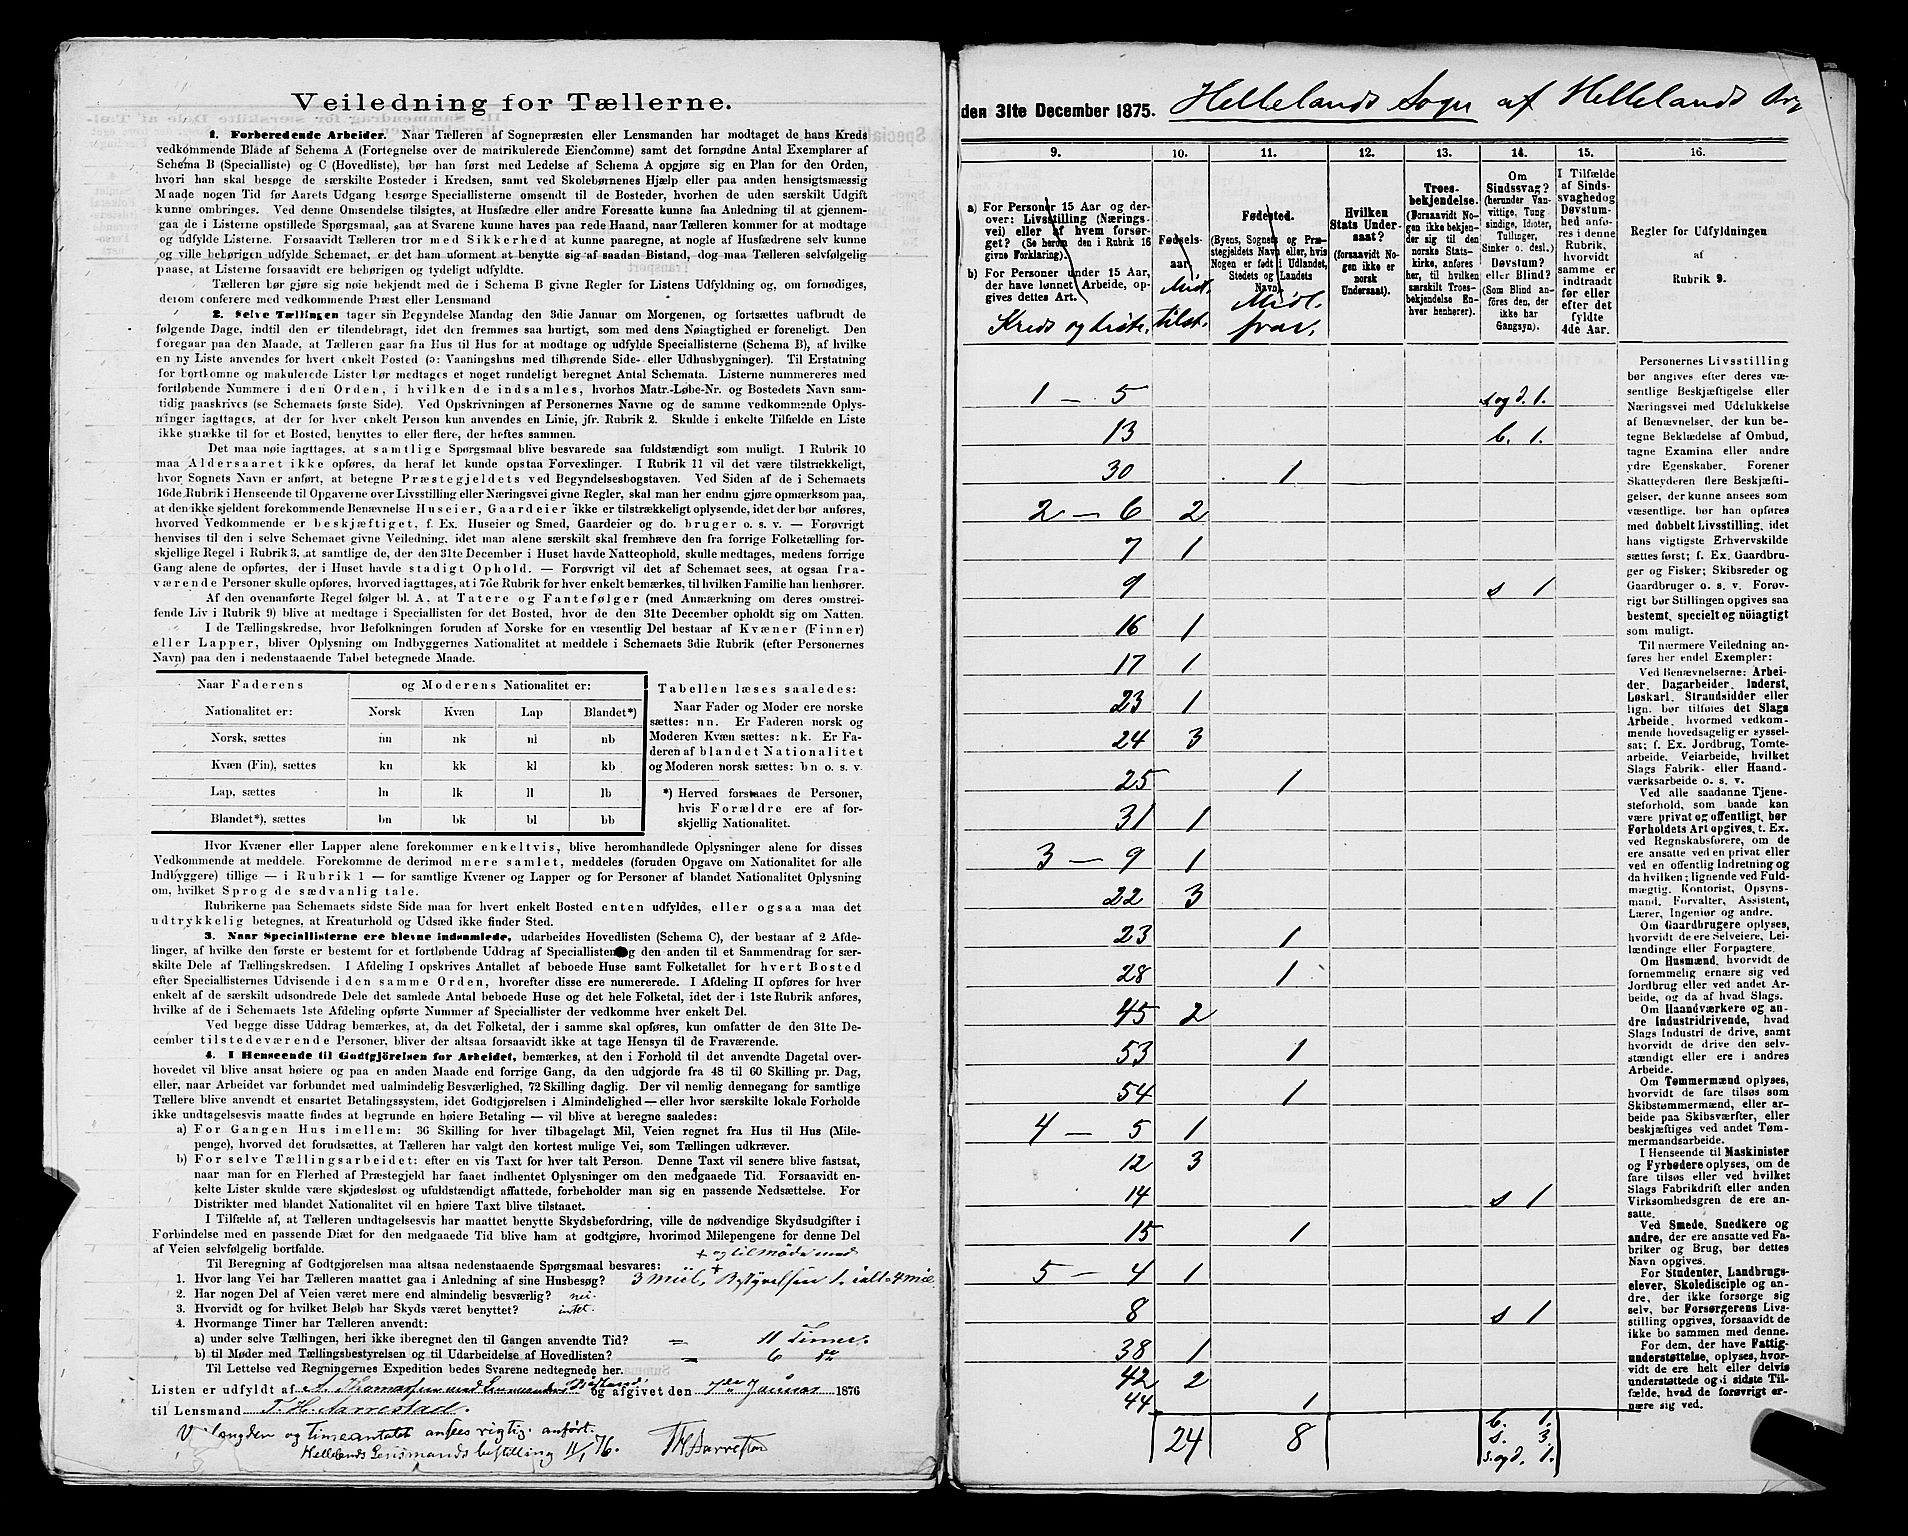 Veiledning for Tællerne.
1. Forberedende Arbeider. Naar Tælleren af Sognepræsten eller Lensmanden har modtaget de hans Kreds
vedkommende Blade af Schema A (Fortegnelse over de matrikulerede Eiendomme) samt det fornødne Antal Exemplarer af
Schema B (Specialliste) og C (Hovedliste), bør han først med Ledelse af Schema A opgjøre sig en Plan for den Orden,
hvori han skal besøge de særskilte Posteder i Kredsen, samt ved Skolebørnenes Hjælp eller paa anden hensigtsmæssig
Maade nogen Tid før Aarets Udgang besørge Speciallisterne omsendt til de Bosteder, hvorhen de uden særskilt Udgift
kunne ombringes. Ved denne Omsendelse tilsigtes, at Husfædre eller andre Foresatte kunne faa Anledning til at gjennem-
gaa de i Listerne opstillede Spørgsmaal, saa at Svarene kunne haves paa rede Haand, naar Tælleren kommer for at modtage
og udfylde Listerne. Forsaavidt Tælleren tror med Sikkerhed at kunne paaregne, at nogle af Husfædrene selv kunne
og ville behørigen udfylde Schemaet, er det ham uforment at benytte sig af saadan Bistand, dog maa Tælleren selvfølgelig
paase, at Listerne forsaavidt ere behørigen og tydeligt udfyldte.
Tælleren bør gjøre sig nøie bekjendt med de i Schema B givne Regler for Listens Udfyldning og, om fornødiges,
derom conferere med vedkommende Præst eller Lensmand
2. Selve Tællingen tager sin Begyndelse Mandag den 3die Januar om Morgenen, og fortsættes uafbrudt de
følgende Dage, indtil den er tilendebragt, idet den fremmes saa hurtigt, som med dens Nøiagtighed er foreneligt. Den
foregaar paa den Maade, at Tælleren gaar fra Hus til Hus for at modtage og udfylde Speciallisterne (Schema B), af hvilke
en ny Liste anvendes for hvert enkelt Bosted (ɔ: Vaaningshus med tilhørende Side- eller Udhusbygninger). Til Erstatning
for bortkomne og makulerede Lister bør medtages et noget rundeligt beregnet Antal Schemata. Listerne nummereres med
fortløbende Nummere i den Orden, i hvilken de indsamles, hvorhos Matr.-Løbe-Nr. og Bostedets Navn sam-
tidig paaskrives (se Schemaets første Side). Ved Opskrivningen af Personernes Navne og de samme vedkommende Oplys-
ninger iagttages, at der for hver enkelt Person kun anvendes en Linie, jfr. Rubrik 2. Skulde i enkelte Tilfælde en Liste
ikke strække til for et Bosted, benyttes to eller flere, der heftes sammen.
Det maa nøie iagttages, at samtlige Spørgsmaal blive besvarede saa fuldstændigt som muligt. I Rubrik 10
maa Aldersaaret ikke opføres, da heraf let kunde opstaa Forvexlinger. I Rubrik 11 vil det være tilstrækkeligt,
hvor Sognets Navn er anført, at betegne Præstegjeldets ved Begyndelsesbogstaven. Ved Siden af de i Schemaets
16de Rubrik i Henseende til Opgaverne over Livsstilling eller Næringsvei givne Regler, skal man her endnu gjøre opmærksom paa,
at den ikke sjeldent forekommende Benævnelse Huseier, Gaardeier ikke er tilstrækkeligt oplysende, idet der bør anføres,
hvorved Vedkommende er beskjæftiget, f. Ex. Huseier og Smed, Gaardeier og do. bruger o. s. v. — Forøvrigt
henvises til den i selve Schemaet givne Veiledning, idet man alene særskilt skal fremhæve den fra forrige Folketælling for-
skjellige Regel i Rubrik 3, at samtlige de, der den 31te December i Huset havde Natteophold, skulle medtages, medens forrige
Gang alene de opførtes, der i Huset havde stadigt Ophold. — Forøvrigt vil det af Schemaet sees, at ogsaa fra-
værende Personer skulle opføres, hvorved iagttages, at i 7de Rubrik for hver enkelt bemærkes, til hvilken Familie han henhører.
Af den ovenanførte Regel følger bl. A, at Tatere og Fantefølger (med Anmærkning om deres omstrei-
fende Liv i Rubrik 9) blive at medtage i Speciallisten for det Bosted, hvor de den 31te December opholdt sig om Natten.
I de Tællingskredse, hvor Befolkningen foruden af Norske for en væsentlig Del bestaar af Kvæner (Finner)
eller Lapper, bliver Oplysning om Indbyggernes Nationalitet at meddele i Schemaets 3die Rubrik (efter Personernes
Navn) paa den i nedenstaaende Tabel betegnede Maade.
Naar Faderens og Moderens Nationalitet er:
Nationalitet er: Norsk Kvæn Lap Blandet*)
Norsk, sættes nn nk nl nb
Kvæn (Fin), sættes kn kk kl kb
Lap, sættes ln lk ll lb
Blandet*), sættes bn bk bl bb
Tabellen læses saaledes:
Naar Fader og Moder ere norske
sættes: nn. Er Faderen norsk og
Moderen Kvæn sættes: nk. Er Fa-
deren af blandet Nationalitet
og Moderen norsk sættes: bn o. s. v.
*) Herved forstaaes de Personer,
hvis Forældre ere af for-
skjellig Nationalitet.
Hvor Kvæner eller Lapper alene forekommer enkeltvis, blive heromhandlede Oplysninger alene for disses
Vedkommende at meddele. Forekomme de derimod mere samlet, meddeles (foruden Opgave om Nationalitet for alle
Indbyggere) tillige — i Rubrik 1 — for samtlige Kvæner og Lapper og for Personer af blandet Nationalitet Oplysning
om, hvilket Sprog de sædvanlig tale.
Rubrikerne paa Schemaets sidste Side maa for hvert enkelt Bosted enten udfyldes, eller ogsaa maa det
udtrykkelig betegnes, at Kreaturhold og Udsæd ikke finder Sted.
3. Naar Speciallisterne ere blevne indsamlede, udarbeides Hovedlisten (Schema C), der bestaar af 2 Afde-
linger, af hvilke den første er bestemt for et fortløbende Uddrag af Speciallisten og den anden til et Sammendrag for sær-
skilte Dele af Tællingskredsen. I Afdeling I opskrives Antallet af beboede Huse samt Folketallet for hvert Bosted
efter Speciallisternes Udvisende i den samme Orden, hvorefter disse ere numererede. I Afdeling II opføres for hver
enkelt af de særskilt udsondrede Dele det samlede Antal beboede Huse og det hele Folketal, idet der i 1ste Rubrik anføres,
hvilke af de i Schemaets 1ste Afdeling opførte Nummer af Speciallister der vedkomme hver enkelt Del.
Ved begge disse Uddrag bemærkes, at, da det Folketal, der i samme skal opføres, kun omfatter de den 31te De-
cember tilstedeværende Personer, bliver der altsaa forsaavidt ikke at tage Hensyn til de Fraværende.
4. I Henseende til Godtgjörelsen for Arbeidet, bemærkes, at den i Forhold til det anvendte Dagetal over-
hovedet vil blive ansat høiere og paa en anden Maade end forrige Gang, da den udgjorde fra 48 til 60 Skilling pr. Dag,
eller, naar Arbeidet var forbundet med ualmindelig Besværlighed, 72 Skilling daglig. Der vil nemlig dennegang for samtlige
Tællere blive anvendt et ensartet Betalingssystem, idet Godtgjørelsen i Almindelighed — eller hvor særskilte lokale Forholde
ikke undtagelsesvis maatte findes at begrunde en høiere Betaling — vil blive at beregne saaledes:
a) For Gangen Hus imellem: 36 Skilling for hver tilbagelagt Mil, Veien regnet fra Hus til Hus (Mile-
penge), hvorved det forudsættes, at Tælleren har valgt den kortest mulige Vei, som Tællingen udkræver.
b) For selve Tællingsarbeidet: efter en vis Taxt for hver talt Person. Denne Taxt vil senere blive fastsat,
naar man for en Flerhed af Præstegjeld har faaet indhentet Oplysninger om den medgaaede Tid. Forsaavidt en-
kelte Lister skulde være skjødesløst og ufuldstændigt affattede, forbeholder man sig en passende Nedsættelse. For
Distrikter med blandet Nationalitet vil en høiere Taxt blive tilstaaet.
I Tilfælde af, at Tælleren undtagelsesvis har maattet benytte Skydsbefordring, ville de nødvendige Skydsudgifter i
Forbindelse med en passende Diæt for den medgaaede Tid blive ham at godtgjøre, hvorimod Milepengene for denne Del
af Veien selvfølgelig bortfalde.
+ og til Möde med
Til Beregning af Godtgjørelsen maa altsaa nedenstaaende Spørgsmaal besvares:
1. Hvor lang Vei har Tælleren maattet gaa i Anledning af sine Husbesøg? 3 Miil, + Bestyrelsen 1. ialt 4 Mile
2. Har nogen Del af Veien været mere end almindelig besværlig? nei.
3. Hvorvidt og for hvilket Beløb har Skyds været benyttet? intet.
4. Hvormange Timer har Tælleren anvendt:
a) under selve Tællingen, heri ikke iberegnet den til Gangen anvendte Tid? = 11 Timer.
b) til Møder med Tællingsbestyrelsen og til Udarbeidelse af Hovedlisten? = 6 do
Til Lettelse ved Regningernes Expedition bedes Svarene nedtegnede her.
Listen er udfyldt af A. Thomassen med Lensmandens Bistand, og afgivet den 7de Januar 1876
til Lensmand T. H. Aarrestad.
Veilængden og Timeantallet ansees rigtig anført.
Hellelands Lensmandsbestilling 11/1 76. TH Aarrestad
den 31te December 1875. Hellelands Sogn af Hellelands
9. 10. 11. 12. 13. 14. 15. 16.
a) For Personer 15 Aar og der-
over: Livsstilling (Nærings-
vei) eller af hvem forsør-
get? (Se herom den i Rubrik 16
givne Forklaring).
b) For Personer under 15 Aar,
der have lønnet Arbeide, op-
gives dettes Art.
Kreds og Liste.
Fødsels-
aar.
Midl.
tilst.
Fødested.
(Byens, Sognets og Præ-
stegjeldets Navn eller, hvis
Nogen er født i Udlandet,
Stedets og Landets
Navn.
Midl.
frav.
Hvilken
Stats Under-
saat?
(forsaavidt No-
gen ikke er
norsk
Undersaat).
Troes-
bekjendelse.
(Forsaavidt No-
gen ikke bekjen-
der sig til den
norske Stats-
kirke, anføres
her, til hvilken
særskilt Troes-
bekjendelse En-
hver henhører).
Om
Sindssvag?
(herunder Van-
vittige, Tung
sindige, Idioter,
Tullinger,
Sinker o. desl.)
Døvstum?
eller Blind?
(Som Blind an-
føres den, der
ikke har
Gangsyn).
I Tilfælde
af Sinds-
svaghed og
Døvstum-
hed anfø-
res i denne
Rubrik,
hvorvidt
samme er
indtraadt
før eller
efter det
fyldte
4de Aar.
Regler for Udfyldningen
af
Rubrik 9.
1 — 5 s og d. 1.
13 b. 1.
30 1
2 — 6 2
7 1
9 s 1
16 1
17 1
23 1
24 3
25 1
31 1
3 — 9 1
22 3
23 1
28 1
45 2
53 1
54 1
4 — 5 1
12 3
14 s 1
15 1
5 — 4 1
8 s 1
38 1
42 2
44 1
24 8 b. 1.
s. 3.
s. og d. 1.
Personernes Livsstilling
bør angives efter deres væ-
sentlige Beskjæftigelse eller
Næringsvei med Udelukkelse
af Benævnelser, der kun be-
tegne Beklædelse af Ombud,
tagne Examina eller andre
ydre Egenskaber. Forener
Skatteyderen flere Beskjæfti-
gelser, der kunne ansees som
væsentlige, bør han opføres
med dobbelt Livsstilling, idet
hans vigtigste Erhvervskilde
sættes først; f. Ex. Gaardbru-
ger og Fisker; Skibsreder og
Gaardbruger o. s. v. Forøv-
rigt bør Stillingen opgives saa
bestemt, specielt og nöiagtigt
som muligt.
Til nærmere Veiledning an-
føres her endel Exempler:
Ved Benævnelserne: Arbei-
der, Dagarbeider, Inderst,
Løskarl, Strandsidder eller
lign. bør tilføies det Slags
Arbeide, hvormed vedkom-
mende hovedsagelig er syssel-
sat; f. Ex. Jordbrug, Tomte-
arbeide, Veiarbeide, hvilket
Slags Fabrik- eller Haand-
værksarbeide o. s. v.
Ved alle saadanne Tjene-
steforhold, som baade kan
være privat og offentligt, bør
Forholdets Art opgives, f. Ex.
ved Regnskabsførere, om de
ere ansatte ved en privat eller
ved en offentlig Indretning og
da hvilken; lignende ved Fuld-
mægtig, Kontorist, Opsyns-
mand, Forvalter, Assistent,
Lærer, Ingeniør og andre.
Om Gaardbrugere oplyses,
hvorvidt de ere Selveiere, Lei-
lændinge eller Forpagtere.
Om Husmænd, hvorvidt de
fornemmelig ernære sig ved
Jordbrug eller ved andet Ar-
beide, og da af hvad Slags.
Om Haandværkere og an-
dre Industridrivende, hvad
Slags Industri de drive, samt
hvorvidt de drive den selv-
stændigt eller ere i andres
Arbeide.
Om Tømmermænd oplyses,
hvorvidt de fare tilsøs som
Skibstømmermænd, eller ar-
beide paa Skibsværfter, eller
beskjæftiges ved andet Tøm-
mermandsarbeide.
I Henseende til Maskinister
og Fyrbødere oplyses, om de
fare tilsøs eller ved hvilket
Slags Fabrikdrift eller anden
Virksomhedsgren de ere an-
satte.
Ved Smede, Snedkere og
andre, der ere ansatte ved Fa-
briker og Brug, bør dettes
Navn opgives.
For Studenter, Landbrugs-
elever, Skoledisciple og an-
dre, der ikke forsørge sig
selv, bør Forsørgerens Livs-
stilling opgives, forsaavidt de
ikke bo sammen med denne.
For dem, der have Fattig-
understøttelse, oplyses, hvor-
vidt de ere helt eller delvis
understøttede og i sidste Til-
fælde, hvad de forøvrigt er-
nære sig ved.